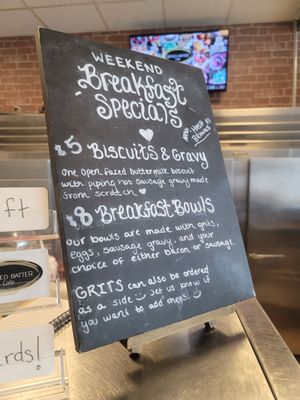 WEEKEND
Breakfast
Specials
NOW HASH N
BROWNS
$5 BISCUITS & GRAVY
one open faced buttermilk biscuit
with piping hot sausage gravy made
from scratch
$8 BREAKFAST BOWLS
our bowls are made with grits,
eggs, sausage gravy, and your
choice of either bacon or sausage.
GRITS can also be ordered
as a side let us know if
you want to add cheese!
ft
ED BATTER
Cafe
rds!